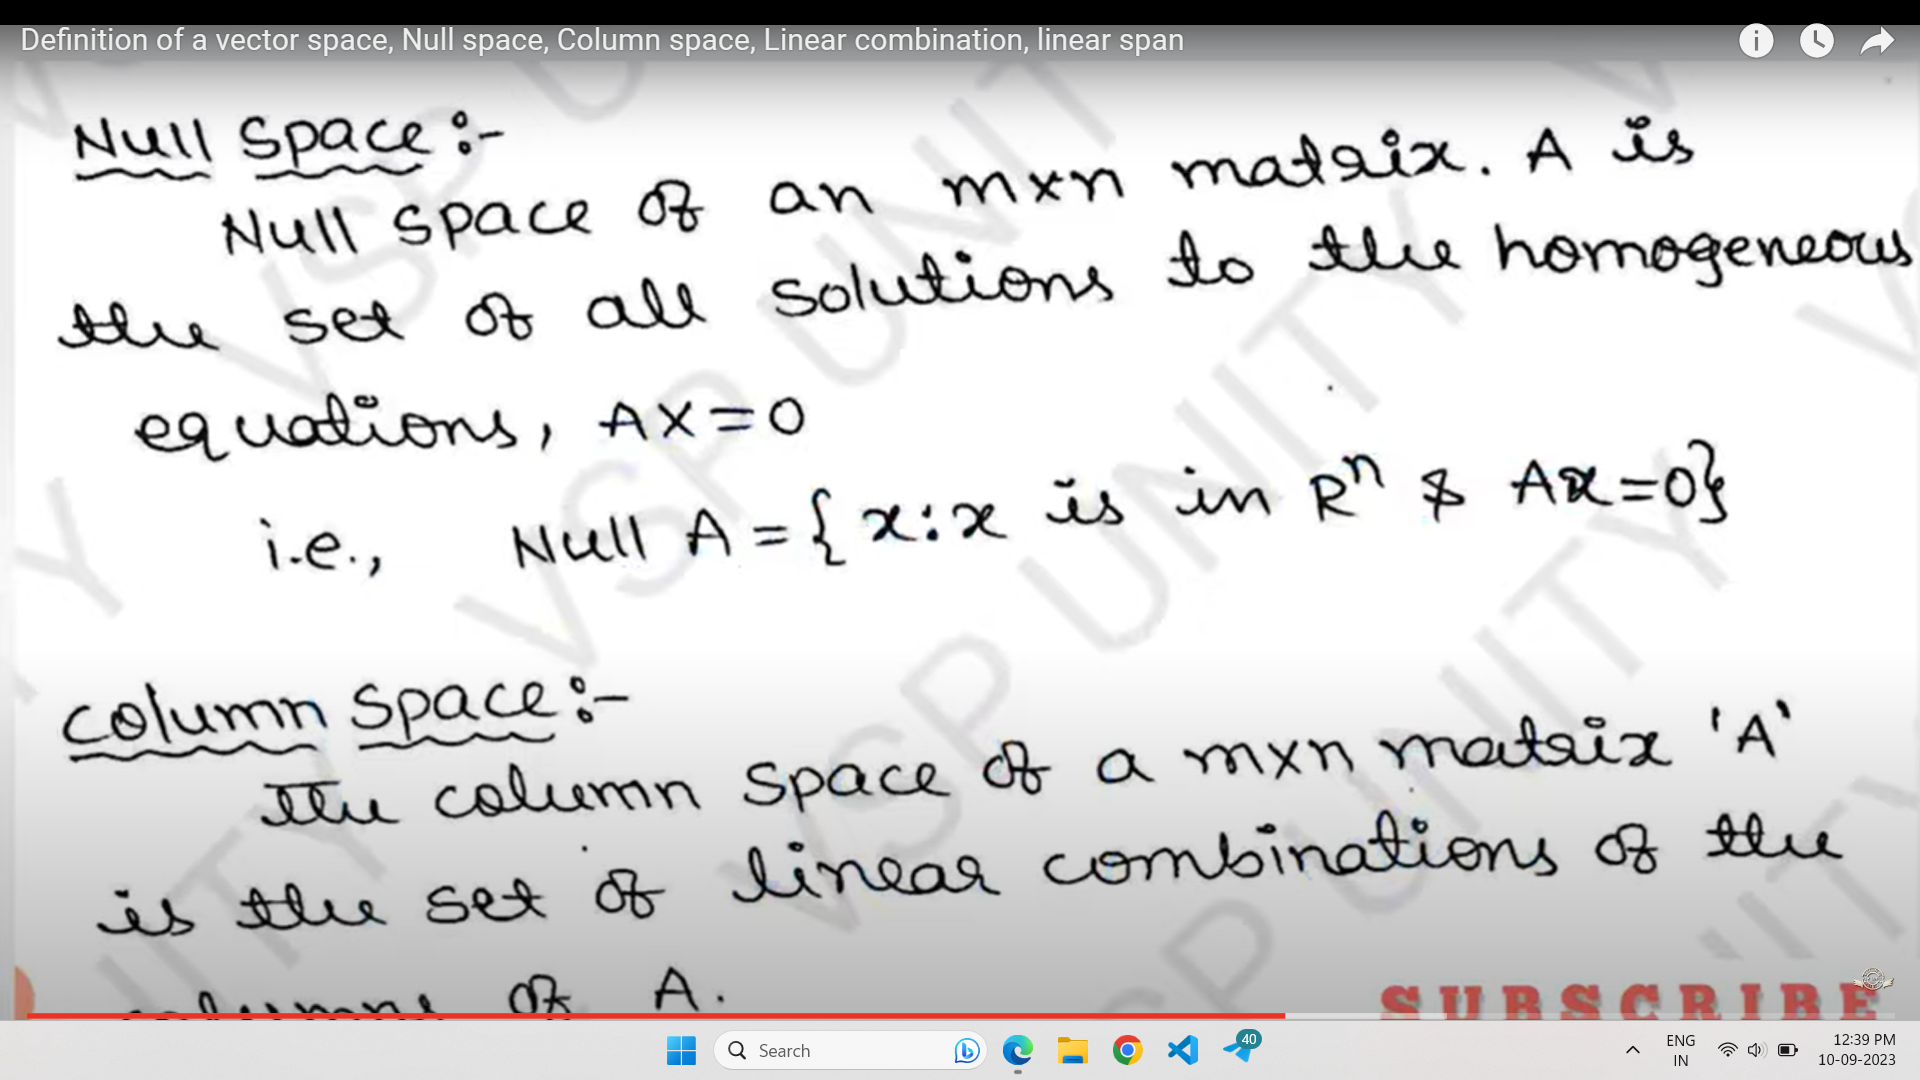 Definition of a vector space, Null space, Column space, Linear combination, linear span
Null Space :-
Null space of an m×n matrix. A is
the set of all solutions to the homogeneous
equations, AX=0
i.e., Null A = { x : x is in Rⁿ & Ax=0}
Column Space :-
The column space of a m×n matrix 'A'
is the set of linear combinations of the
columns of A.
SUBSCRIBE
VSP UNITY
Search
40
ENG
IN
12:39 PM
10-09-2023